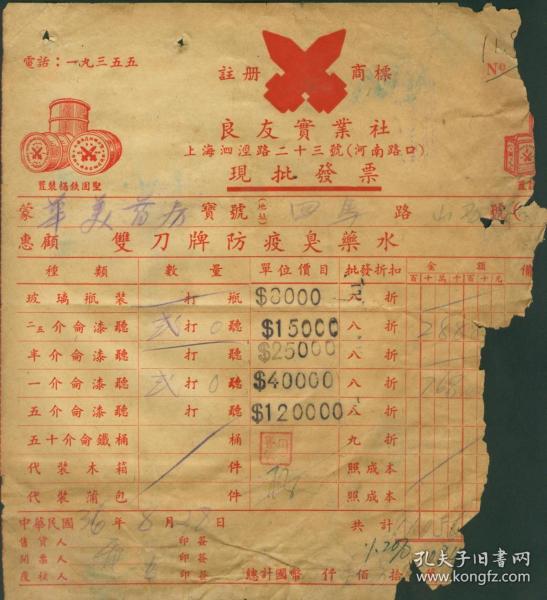 電話：一九三五五
註册 商標
№
良友實業社
上海泗涇路二十三號(河南路口)
現批發票
堅固鉄桶裝置
蒙 華美药房 寶號 (地址) 四馬 路 號
惠顧 雙刀牌防疫臭藥水
種類 數量 單位價目 批發折扣 金額 備
百十萬千百十元
玻璃瓶裝 打 瓶 $8000 折
二五介侖漆聽 弍打0聽 $15000 八折
半介侖漆聽 打 聽 $25000 八折
一介侖漆聽 弍打0聽 $40000 八折
五介侖漆聽 打 聽 $120000 八折
五十介侖鐵桶 桶 九折
代裝木箱 件 照成本
代裝蒲包 件 照成本
中華民國 36年8月 日 共計
售貨人 印簽
開票人 印簽
覆核人 印簽
總計國幣 仟 佰 拾
孔夫子旧书网
www.kongfz.com